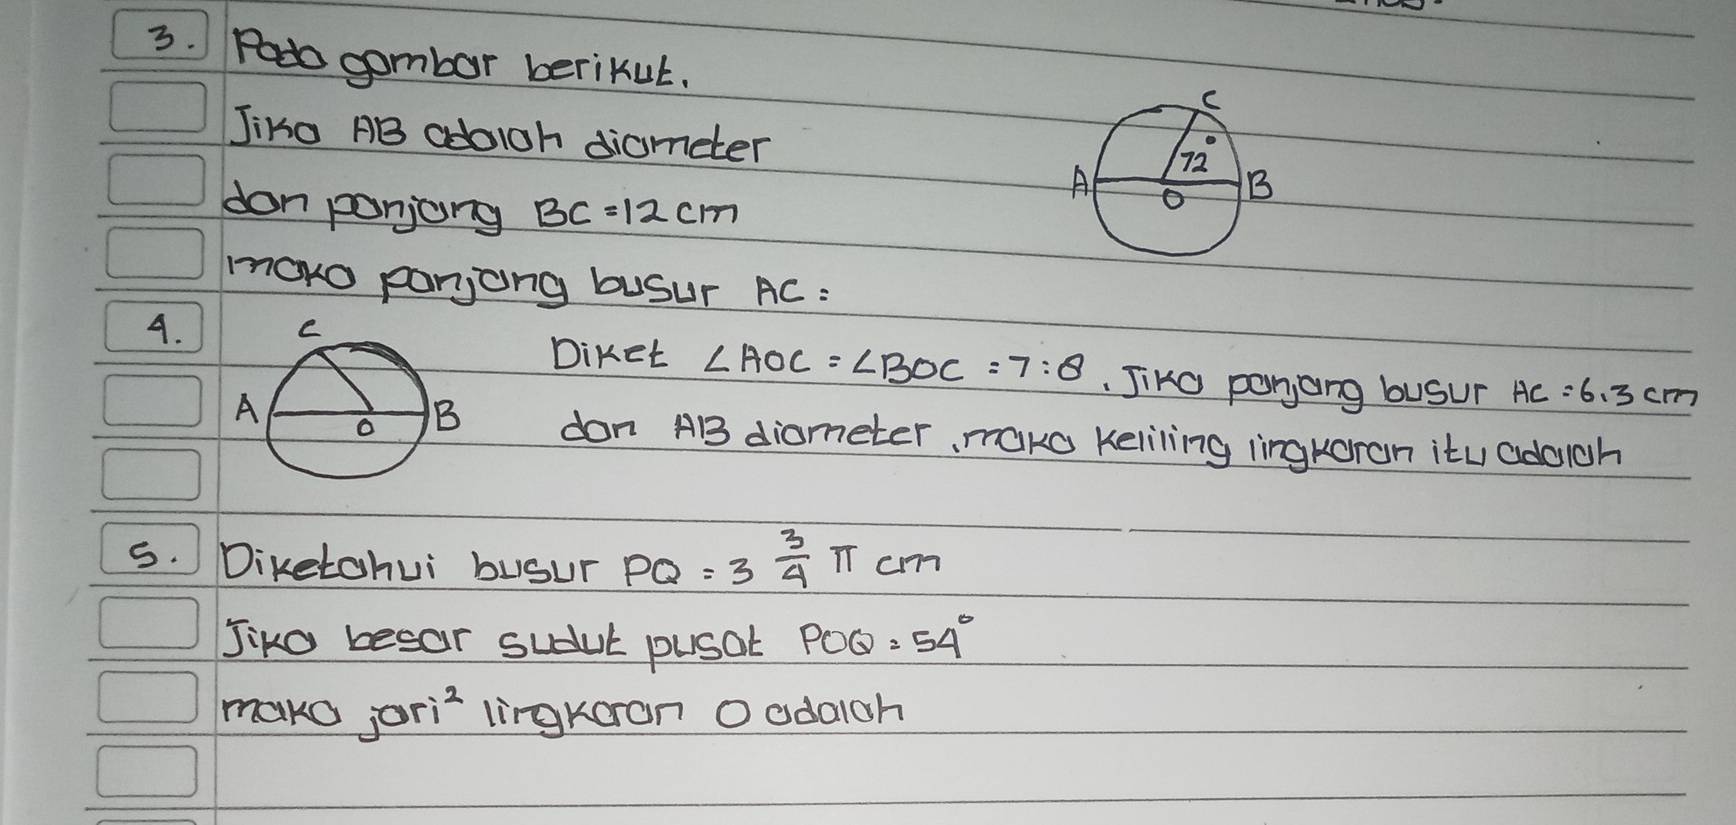 3. Pada gambar berikut.
Jika AB adalah diameter
dan panjang BC = 12 cm
maka panjang busur AC =
C
72°
A
B
O
4.
C
A
B
O
Diket ∠AOC = ∠BOC = 7:8. Jika panjang busur AC = 6.3 cm
dan AB diameter, maka keliling lingkaran itu adalah
5. Diketahui busur PQ = 3 3/4 π cm
Jika besar sudut pusat POQ = 54°
maka jari² lingkaran O adalah